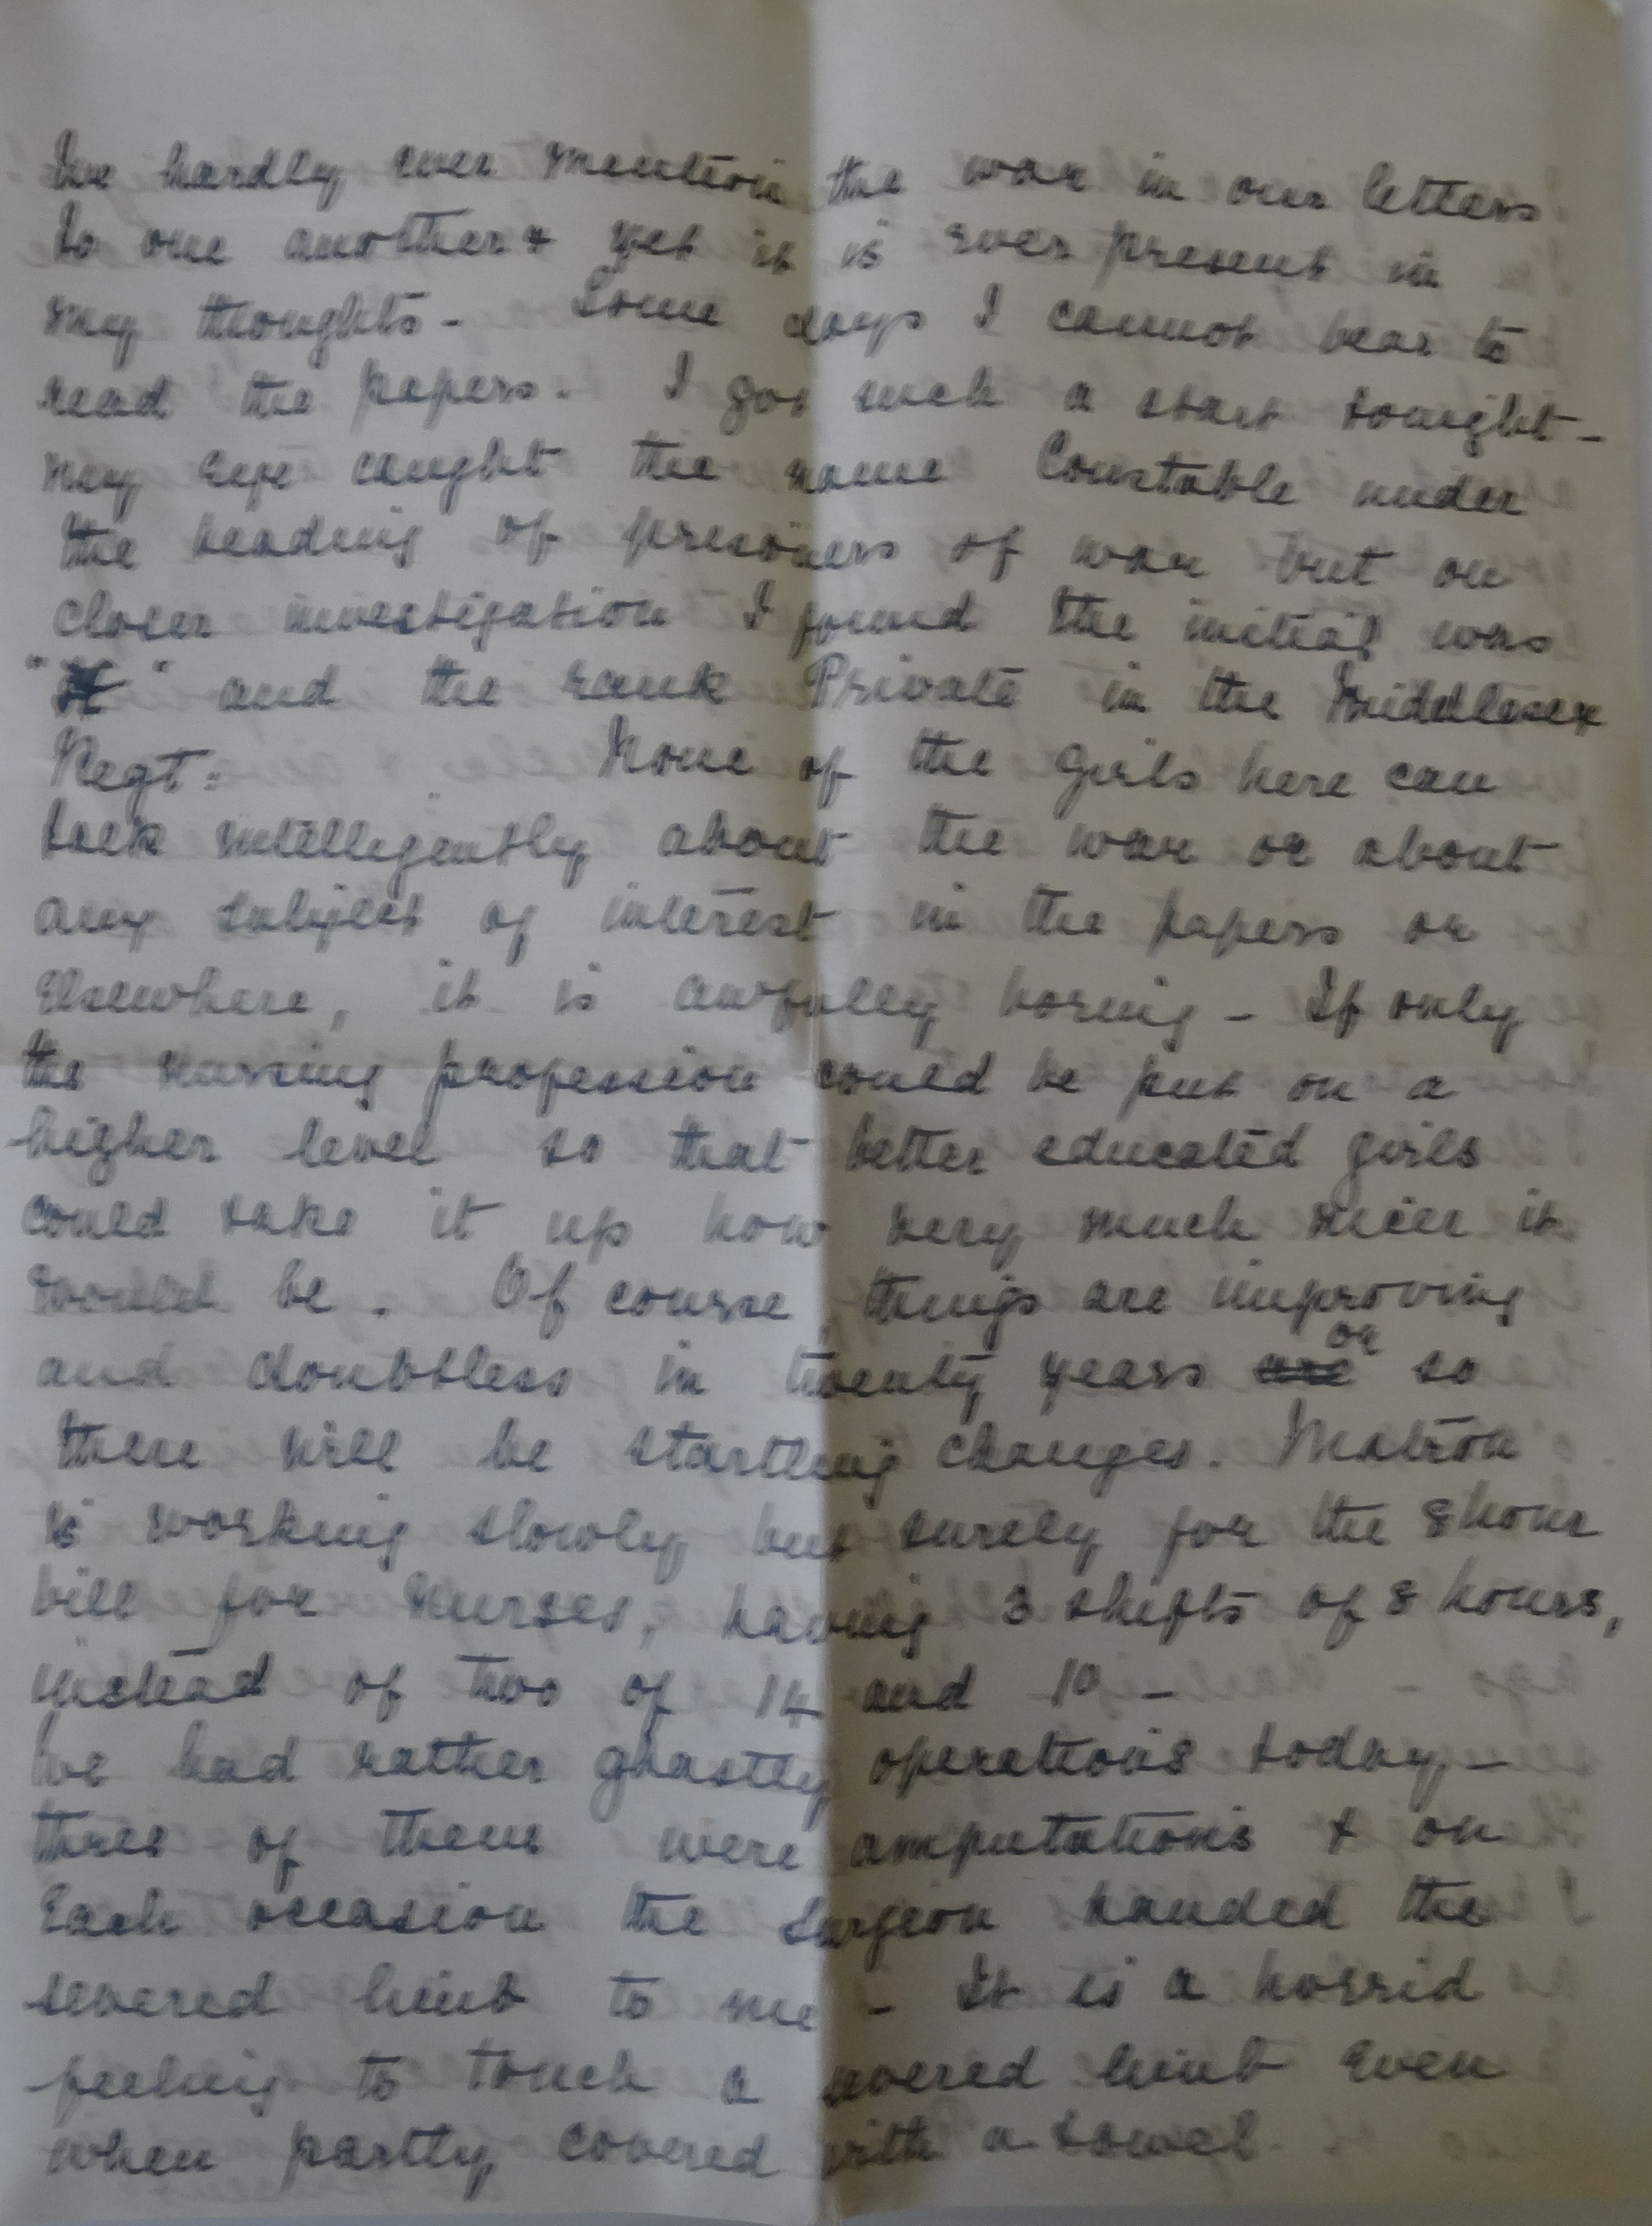 We hardly ever mention the war in our letters
to one another & yet it is ever present in
my thoughts - Some days I cannot bear to
read the papers. I got such a start tonight -
my eye caught the name Constable under
the heading of prisoners of war but on
closer investigation I found the initial was
"H" and the rank Private in the Middlesex
Regt: None of the girls here can
talk intelligently about the war or about
any subject of interest in the papers or
elsewhere, it is awfully boring - If only
the nursing profession could be put on a
higher level so that better educated girls
could take it up how very much nicer it
would be. Of course, things are improving
and doubtless in twenty years or so
there will be startling changes. Matron
is working slowly but surely for the 8 hour
bill for nurses, having 3 shifts of 8 hours,
instead of two of 14 and 10 -
We had rather ghastly operations today -
three of them were amputations & on
each occasion the surgeon handed the
severed limb to me - It is a horrid
feeling to touch a severed limb even
when partly covered with a towel.